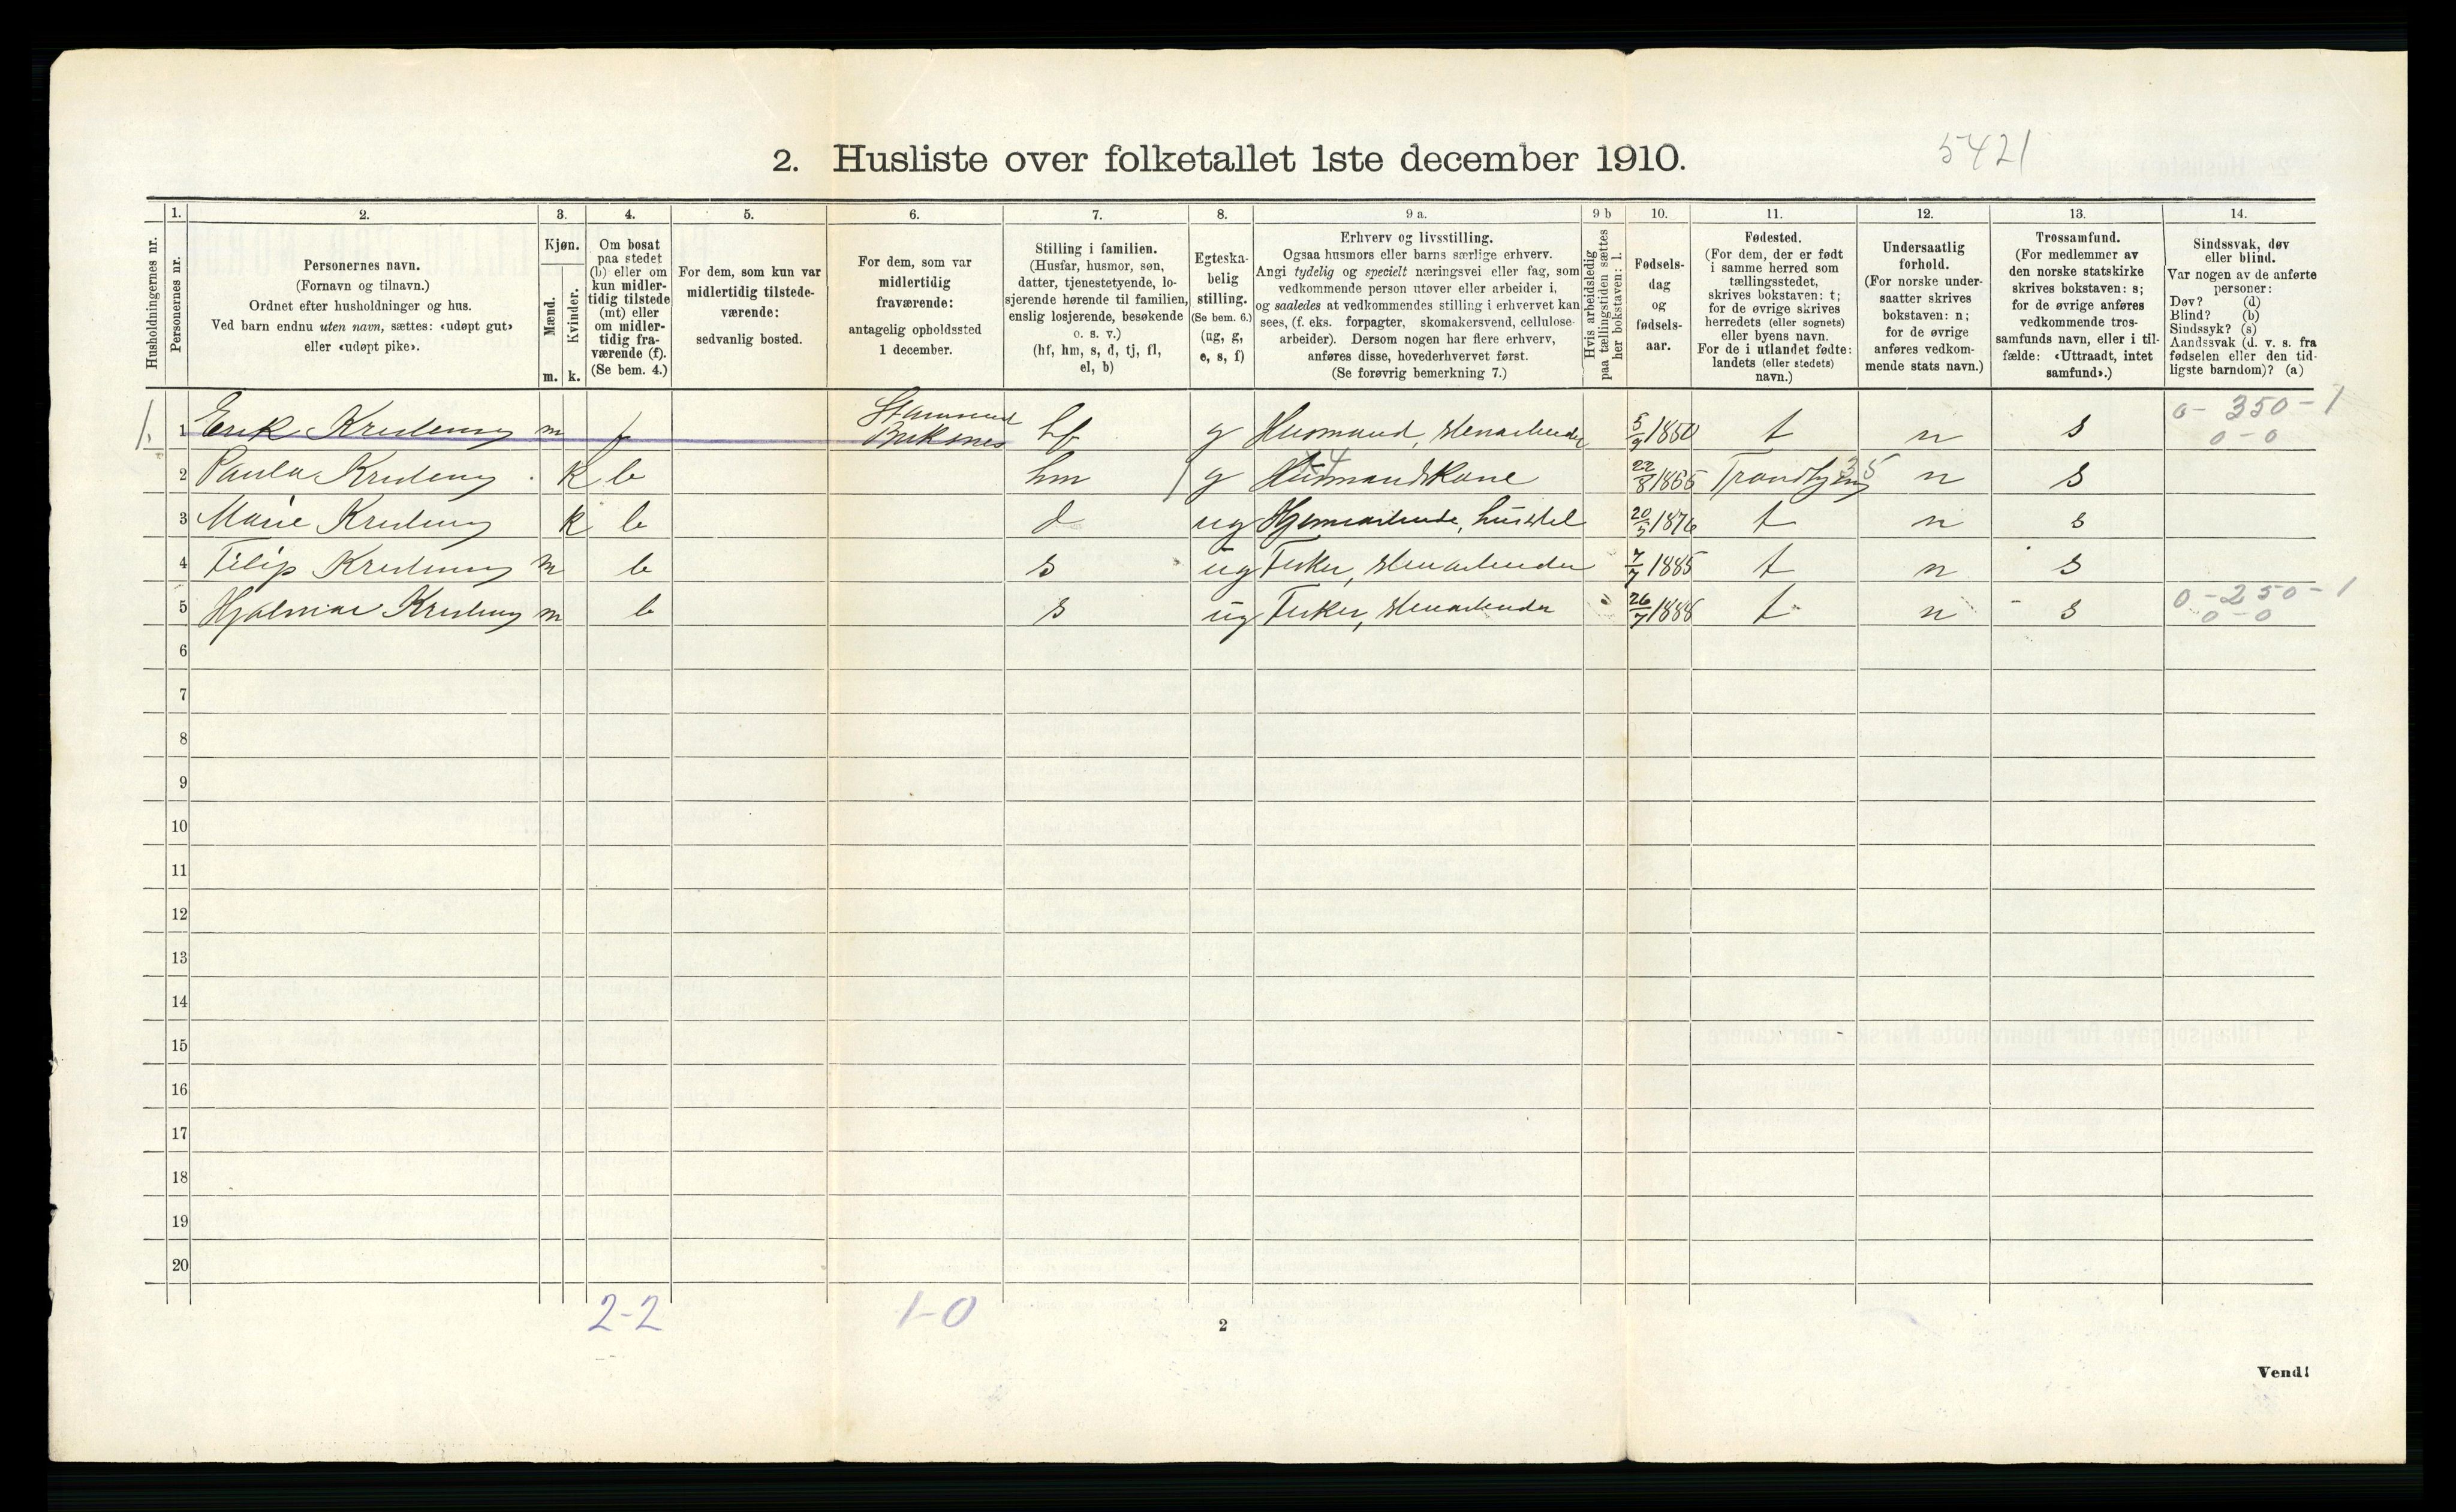 2. Husliste over folketallet 1ste december 1910.
5421
Husholdningernes nr.
1. Personernes nr.
2. Personernes navn.
(Fornavn og tilnavn.)
Ordnet efter husholdninger og hus.
Ved barn endnu uten navn, sættes: «udøpt gut»
eller «udøpt pike».
3. Kjøn.
Mænd. Kvinder.
m. k.
4. Om bosat
paa stedet
(b) eller om
kun midler-
tidig tilstede
(mt) eller
om midler-
tidig fra-
værende (f).
(Se bem. 4.)
5. For dem, som kun var
midlertidig tilstede-
værende:
sedvanlig bosted.
6. For dem, som var
midlertidig
fraværende:
antagelig opholdssted
1 december.
7. Stilling i familien.
(Husfar, husmor, søn,
datter, tjenestetyende, lo-
sjerende hørende til familien,
enslig losjerende, besøkende
o. s. v.)
(hf, hm, s, d, tj, fl,
el, b)
8. Egteska-
belig
stilling.
(Se bem. 6.)
(ug, g,
e, s, f)
9 a. Erhverv og livsstilling.
Ogsaa husmors eller barns særlige erhverv.
Angi tydelig og specielt næringsvei eller fag, som
vedkommende person utøver eller arbeider i,
og saaledes at vedkommendes stilling i erhvervet kan
sees, (f. eks. forpagter, skomakersvend, cellulose-
arbeider). Dersom nogen har flere erhverv,
anføres disse, hovederhvervet først.
(Se forøvrig bemerkning 7.)
9 b Hvis arbeidsledig
paa tællingstiden sættes
her bokstaven: l.
10. Fødsels-
dag
og
fødsels-
aar.
11. Fødested.
(For dem, der er født
i samme herred som
tællingsstedet,
skrives bokstaven: t;
for de øvrige skrives
herredets (eller sognets)
eller byens navn.
For de i utlandet fødte:
landets (eller stedets)
navn.)
12. Undersaatlig
forhold.
(For norske under-
saatter skrives
bokstaven: n;
for de øvrige
anføres vedkom-
mende stats navn.)
13. Trossamfund.
(For medlemmer av
den norske statskirke
skrives bokstaven: s;
for de øvrige anføres
vedkommende tros-
samfunds navn, eller i til-
fælde: «Uttraadt, intet
samfund».)
14. Sindssvak, døv
eller blind.
Var nogen av de anførte
personer:
Døv? (d)
Blind? (b)
Sindssyk? (s)
Aandssvak (d. v. s. fra
fødselen eller den tid-
ligste barndom)? (a)
1. 1 Erik m f Buksnes hf g Husmand, stenarbeider 5/9 1850 t n s 0-350-1
0-0
2 Paula k b hm g Husmandskone 22/8 n s
3 Marie k b d ug husstel 20/5 1876 t n s
4 Filip m b s ug Fisker, stenarbeider 7/7 1885 t n s
5 Hjalmar m b s ug Fisker, stenarbeider 26/7 1888 t n s 0-250-1
0-0
6
7
8
9
10
11
12
13
14
15
16
17
18
19
20
2-2 1-0
2
Vend!